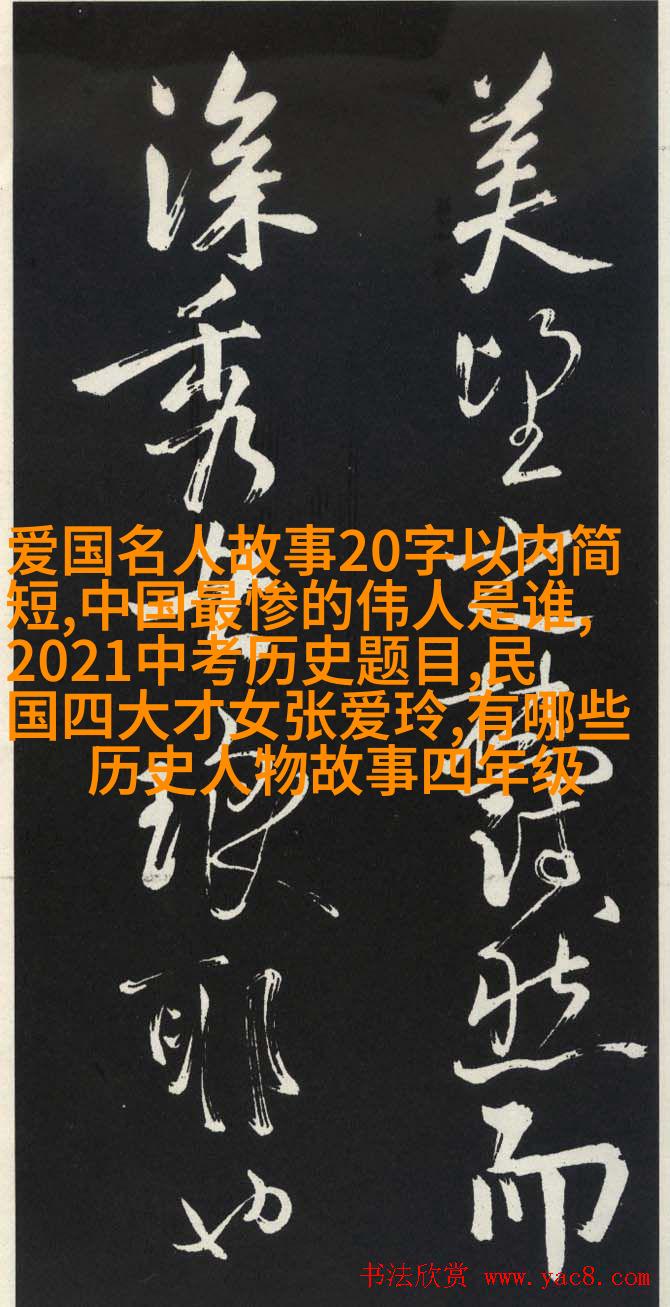 美望之蔚然而
深秀者琅耶也
爱国名人故事20字以内简
短,中国最惨的伟人是谁,
2021中考历史题目,民
国四大才女张爱玲,有哪些
历史人物故事四年级
书法欣赏 www.yac8.com